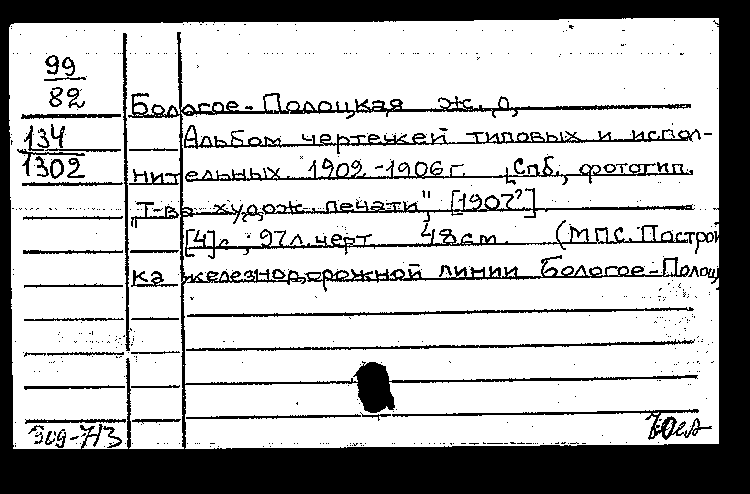 99
82
Бологое-Полоцкая ж.д.
134
Альбом чертежей типовых и испол-
1302
нительных. 1902-1906 г. [Спб., фототип.
"Т-ва худож. печати", [1907?]
[4]с.; 97 л. черт. 48 см. (МПС. Построй
ка железнодорожной линии Бологое-Полоц